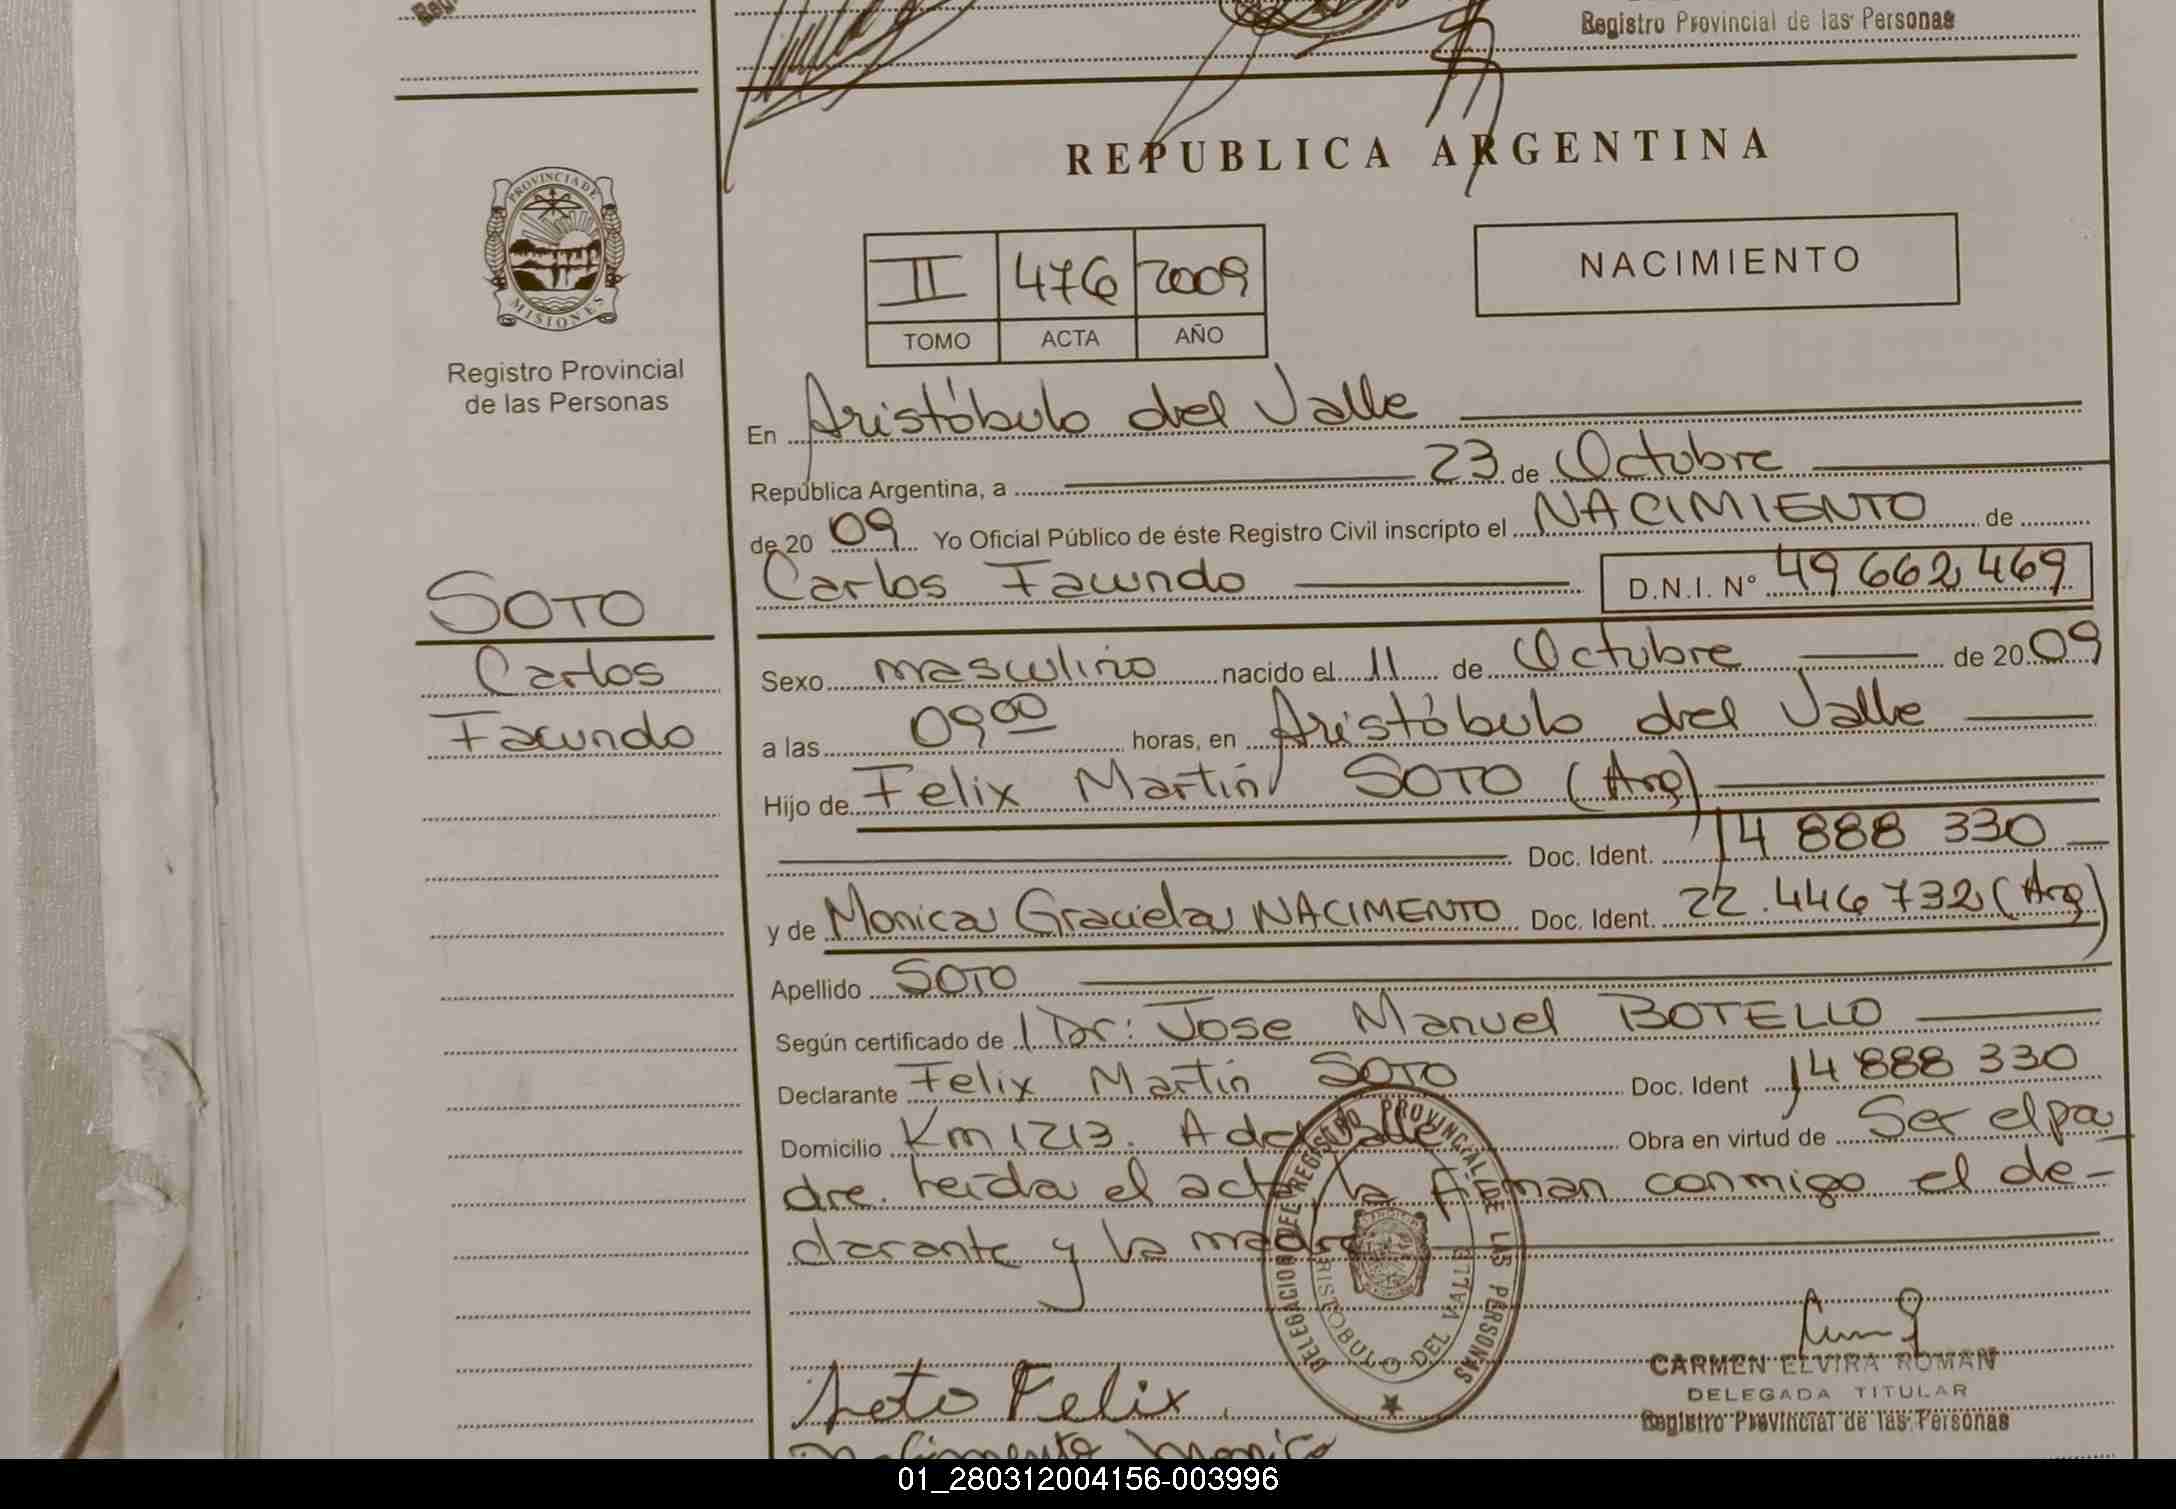 Registro Provincial de las Personas
REPUBLICA ARGENTINA
PROVINCIA DE
MISIONES
Registro Provincial
de las Personas
II 476 2009
TOMO ACTA AÑO
NACIMIENTO
En Aristóbulo del Valle
República Argentina, a 23 de Octubre
de 20 09 Yo Oficial Público de éste Registro Civil inscripto el NACIMIENTO de
Carlos Facundo D.N.I. N° 49 662 469
SOTO
Carlos
Facundo
Sexo masculino nacido el 11 de Octubre de 20 09
a las 09 00 horas, en Aristóbulo del Valle
Hijo de Felix Martín SOTO (Arg)
Doc. Ident. 14 888 330
y de Monica Graciela NACIMENTO Doc. Ident. 22.446 732 (Arg)
Apellido SOTO
Según certificado de l Dr: Jose Manuel BOTELLO
Declarante Felix Martín SOTO Doc. Ident 14 888 330
Domicilio Km 1213. A del Valle Obra en virtud de Ser el pa
dre. Leída el acta, la firman conmigo el de-
clarante y la madre
DELEGACION DEL REGISTRO PROVINCIAL DE LAS PERSONAS
ARISTOBULO DEL VALLE
CARMEN ELVIRA ROMAN
DELEGADA TITULAR
Registro Provincial de las Personas
Soto Felix
Nacimento Monica
01_280312004156-003996